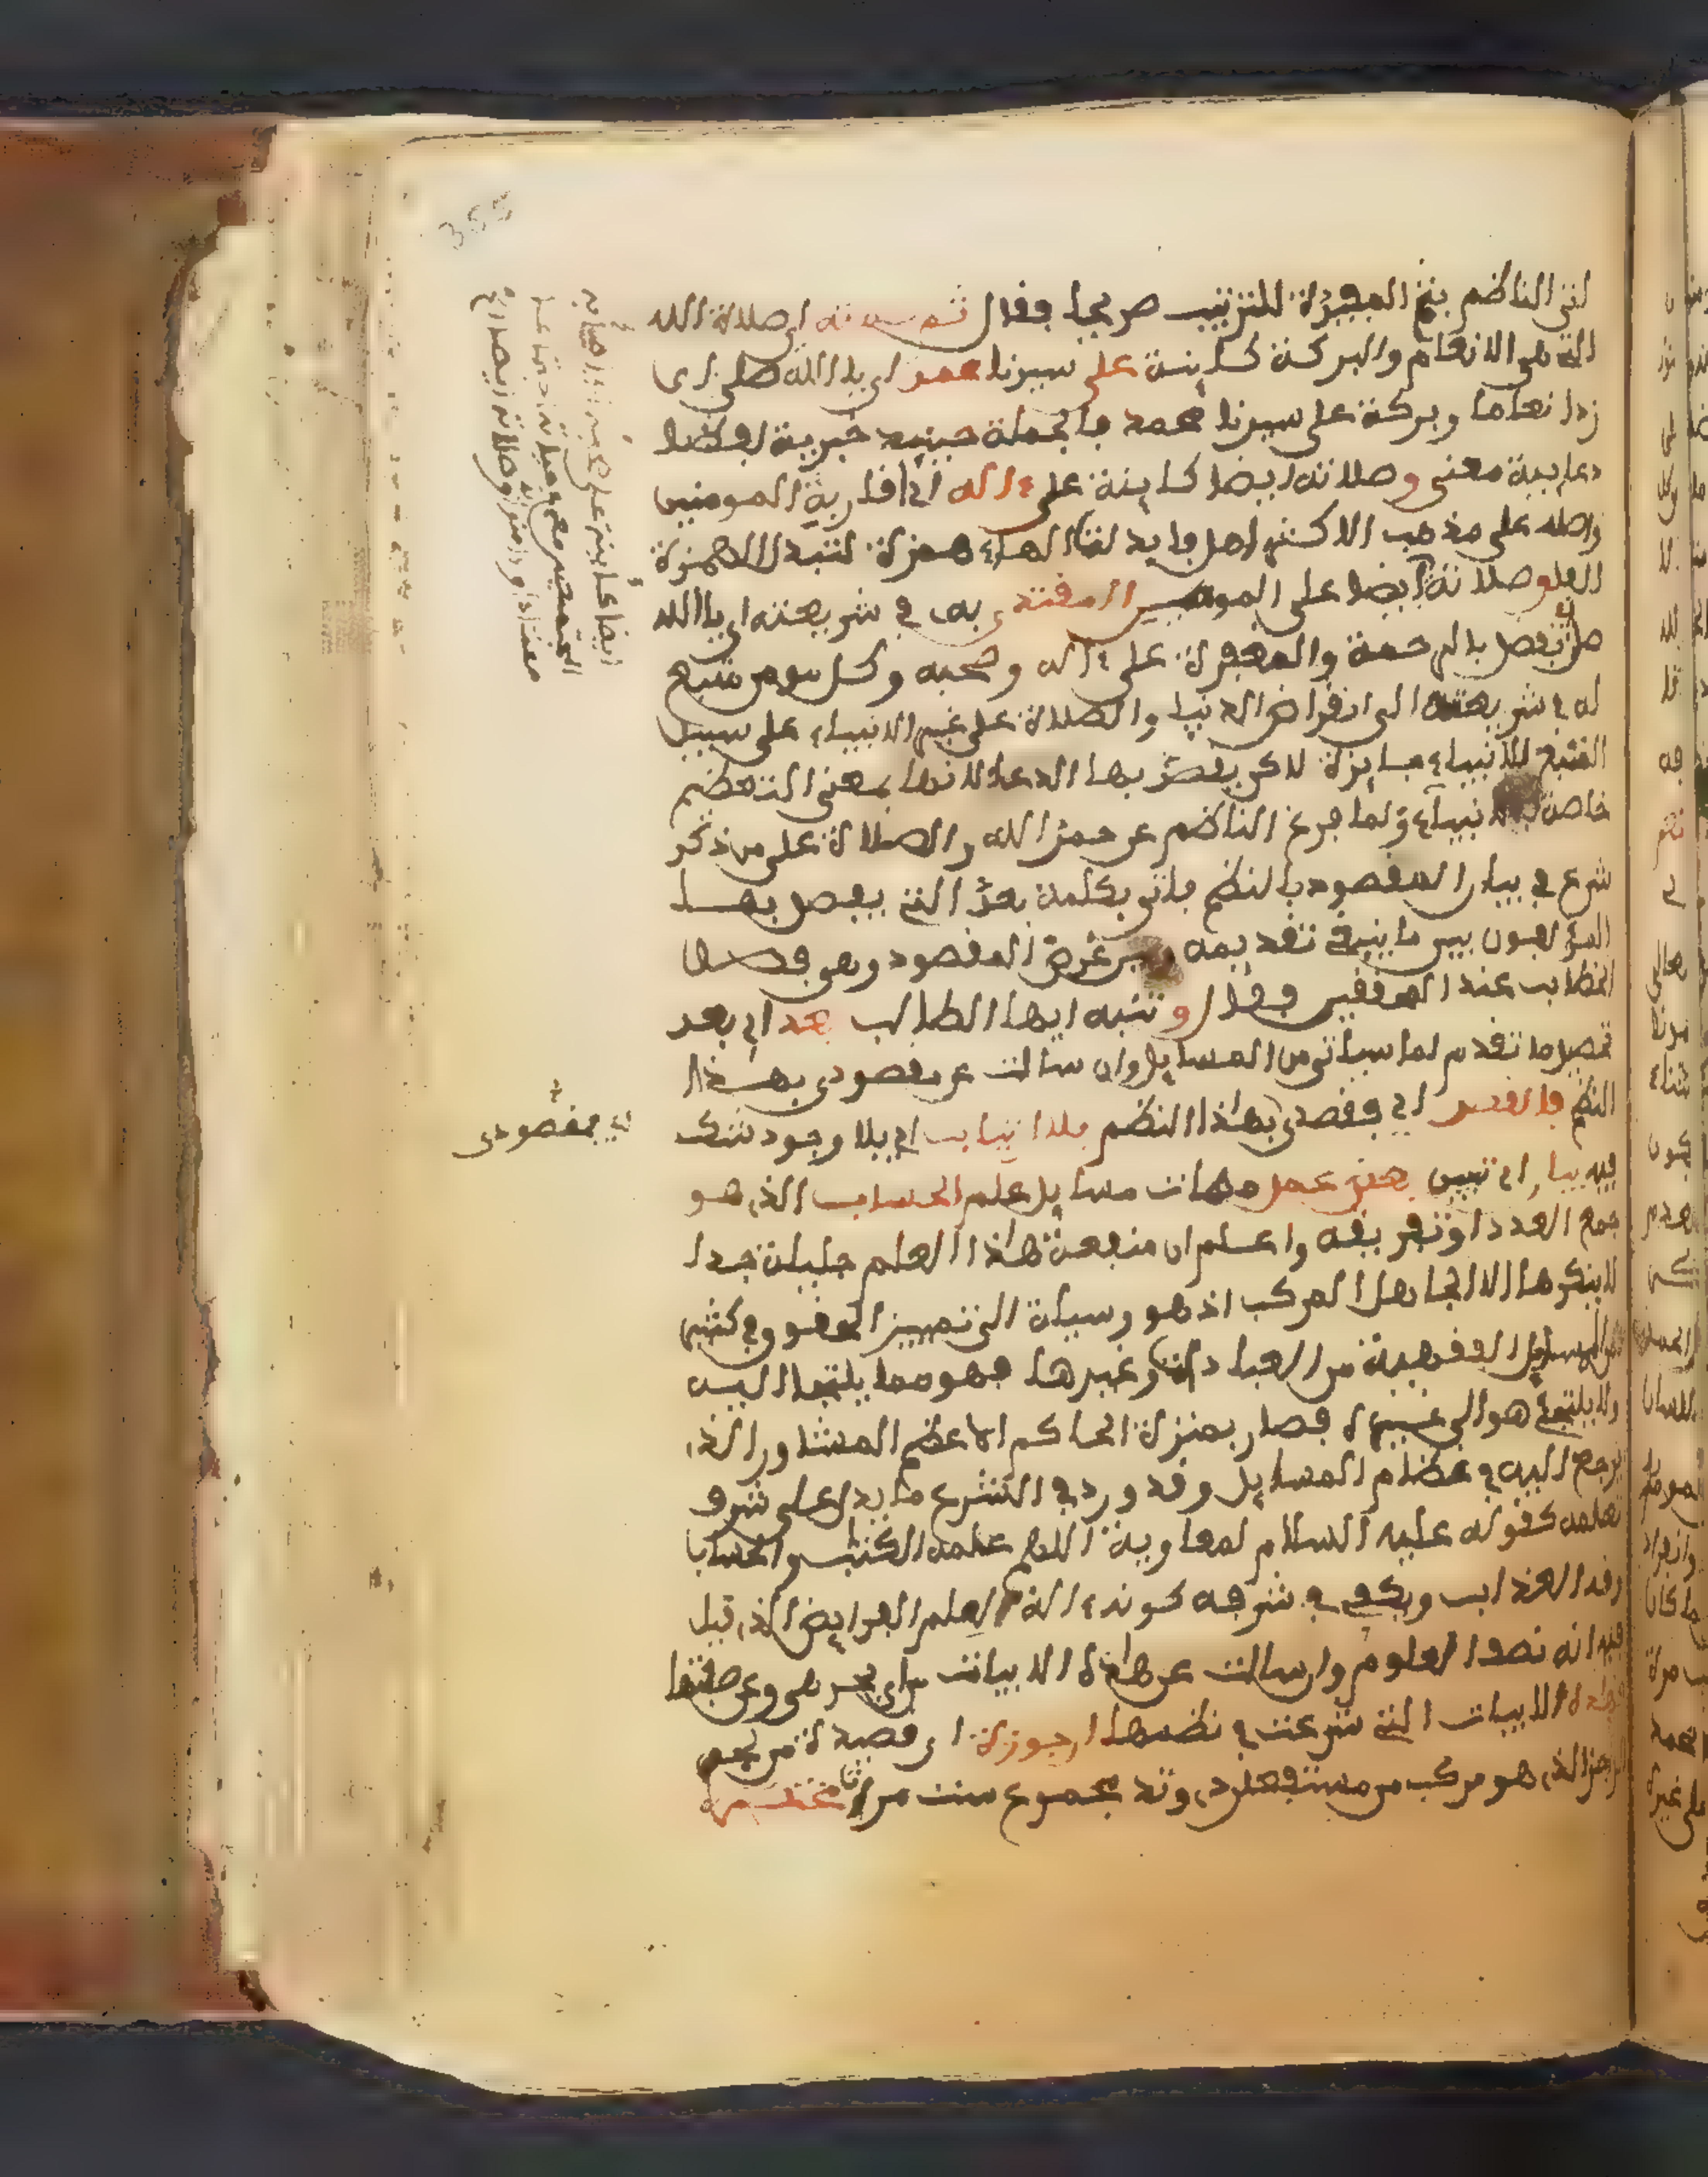 اتى الناظم بثم المفيدة للترتيب صريحا فقال ثم صلاته اي صلاة الله
التي هي الانعام والبركة كاينة على سيدنا محمد اي يا الله صل اي
زد انعاما وبركة على سيدنا محمد فالجملة حينيذ خبرية لفظا
دعايية معنى وصلاته ايضا كاينة على ءاله اي اقاربه المومنين
واصله على مذهب الاكثر اهل فابدلت الهاء همزة لتبدل الهمزة
الفا وصلاته ايضا على المومنين المقتدي به في شريعته اي يا الله
تفضل بالرحمة والمغفرة على ءاله وصحبه وكل مومن متبع
له في شريعته الى انقراض الدنيا والصلاة على غير الانبياء على سبيل
التبع للانبياء جايزة لاكن يقصد بها الدعاء لانها بمعنى التعظيم
خاصة بالانبياء ولما فرغ الناظم عن حمد الله والصلاة على من ذكر
شرع في بيان المقصود بالنظم فاتى بكلمة بعد التي يفصل بها
المؤلفون بين ما ينبغي تقديمه وبين غرض المقصود وهي فصل
الخطاب عند المحققين فقال وتنبه ايها الطالب بعد اي بعد
تحصيل ما تقدم لما سياتي من المسايل وان سالت عن مقصودي بهذا
النظم فالقصد اي فقصدي بهاذا النظم بلا ارتياب اي بلا وجود شك
فيه بيان اي تبيين بعض عمل مهمات مسايل علم الحساب الذي هو
جمع العدد او تفريقه واعلم ان منفعة هاذا العلم جليلة جدا
لا ينكرها الا الجاهل المركب اذ هو وسيلة الى تمييز الحقوق وفي كثير
من المسايل الفقهية من العبادات وغيرها فهو مما يلتجا اليه
ولا يلتجئ هو الى غيره فصار بمنزلة الحاكم الاعظم المشاور الذي
يرجع اليه في عظام المسايل وقد ورد في الشرع ما يدل على شرف
تعلمه كقوله عليه السلام لمعاوية اللهم علمه الكتاب والحساب
وقه العذاب ويكفي في شرفه كونه ءالة لعلم الفرايض الذي قيل
فيه انه نصف العلوم وان سالت عن هاذه الابيات من اي بحر هي وعن صفتها
فهاذه الابيات التي شرعت في نظمها ارجوزة اي قصيدة من بحر
الرجز الذي هو مركب من مستفعلن وتد مجموع ست مرات مختصرة
اي مقصودي